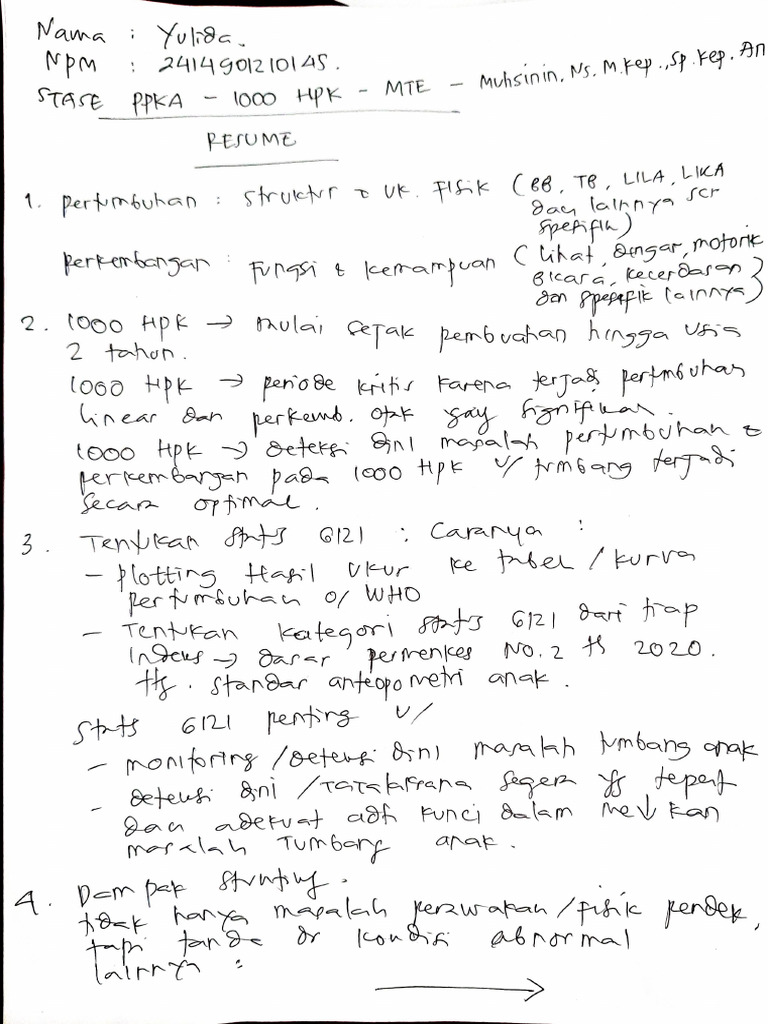 Nama : Yulida.
Npm : 2414901210145.
STASE PPKA - 1000 HPK - MTE - Muhsinin, Ns. M.Kep., Sp.Kep. An
RESUME
1. pertumbuhan : struktur & uk. Fisik (BB, TB, LILA, LIKA
dan lainnya scr
spesifik)
perkembangan : Fungsi & kemampuan (lihat, dengar, motorik
bicara, kecerdasan
dan spesifik lainnya)
2. 1000 HPK → mulai sejak pembuahan hingga usia
2 tahun.
1000 HPK → periode kritis karena terjadi pertumbuhan
linear dan perkemb. otak yg signifikan.
1000 HPK → deteksi dini masalah pertumbuhan &
perkembangan pada 1000 HPK u/ tumbang terjadi
secara optimal.
3. Tentukan status Gizi : Caranya :
- plotting Hasil Ukur ke tabel / kurva
pertumbuhan o/ WHO
- Tentukan kategori status Gizi dari tiap
Indeks → dasar permenkes No. 2 th 2020.
ttg. standar antropometri anak.
status Gizi penting u/
- monitoring / deteksi dini masalah tumbang anak
- deteksi dini / Tatalaksana segera yg tepat
dan adekuat adh kunci dalam me↓kan
masalah Tumbang anak.
4. Dampak stunting.
tidak hanya masalah perawakan / fisik pendek,
tapi tanda dr kondisi abnormal
lainnya :